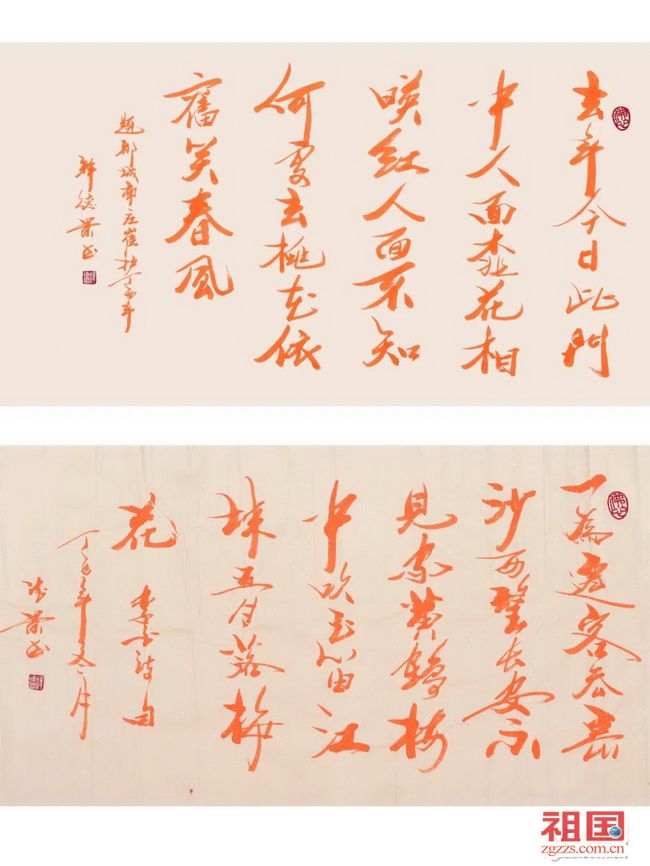 去年今日此門
中人面桃花相
映紅人面不知
何處去桃花依
舊笑春風
題都城南庄崔护丁亥年
德景书
一為遷客去長
沙西望長安不
見家黄鶴楼
中吹玉笛江
城五月落梅
花 李白詩句
丁亥年 月
德景书
祖国
zgzzs.com.cn